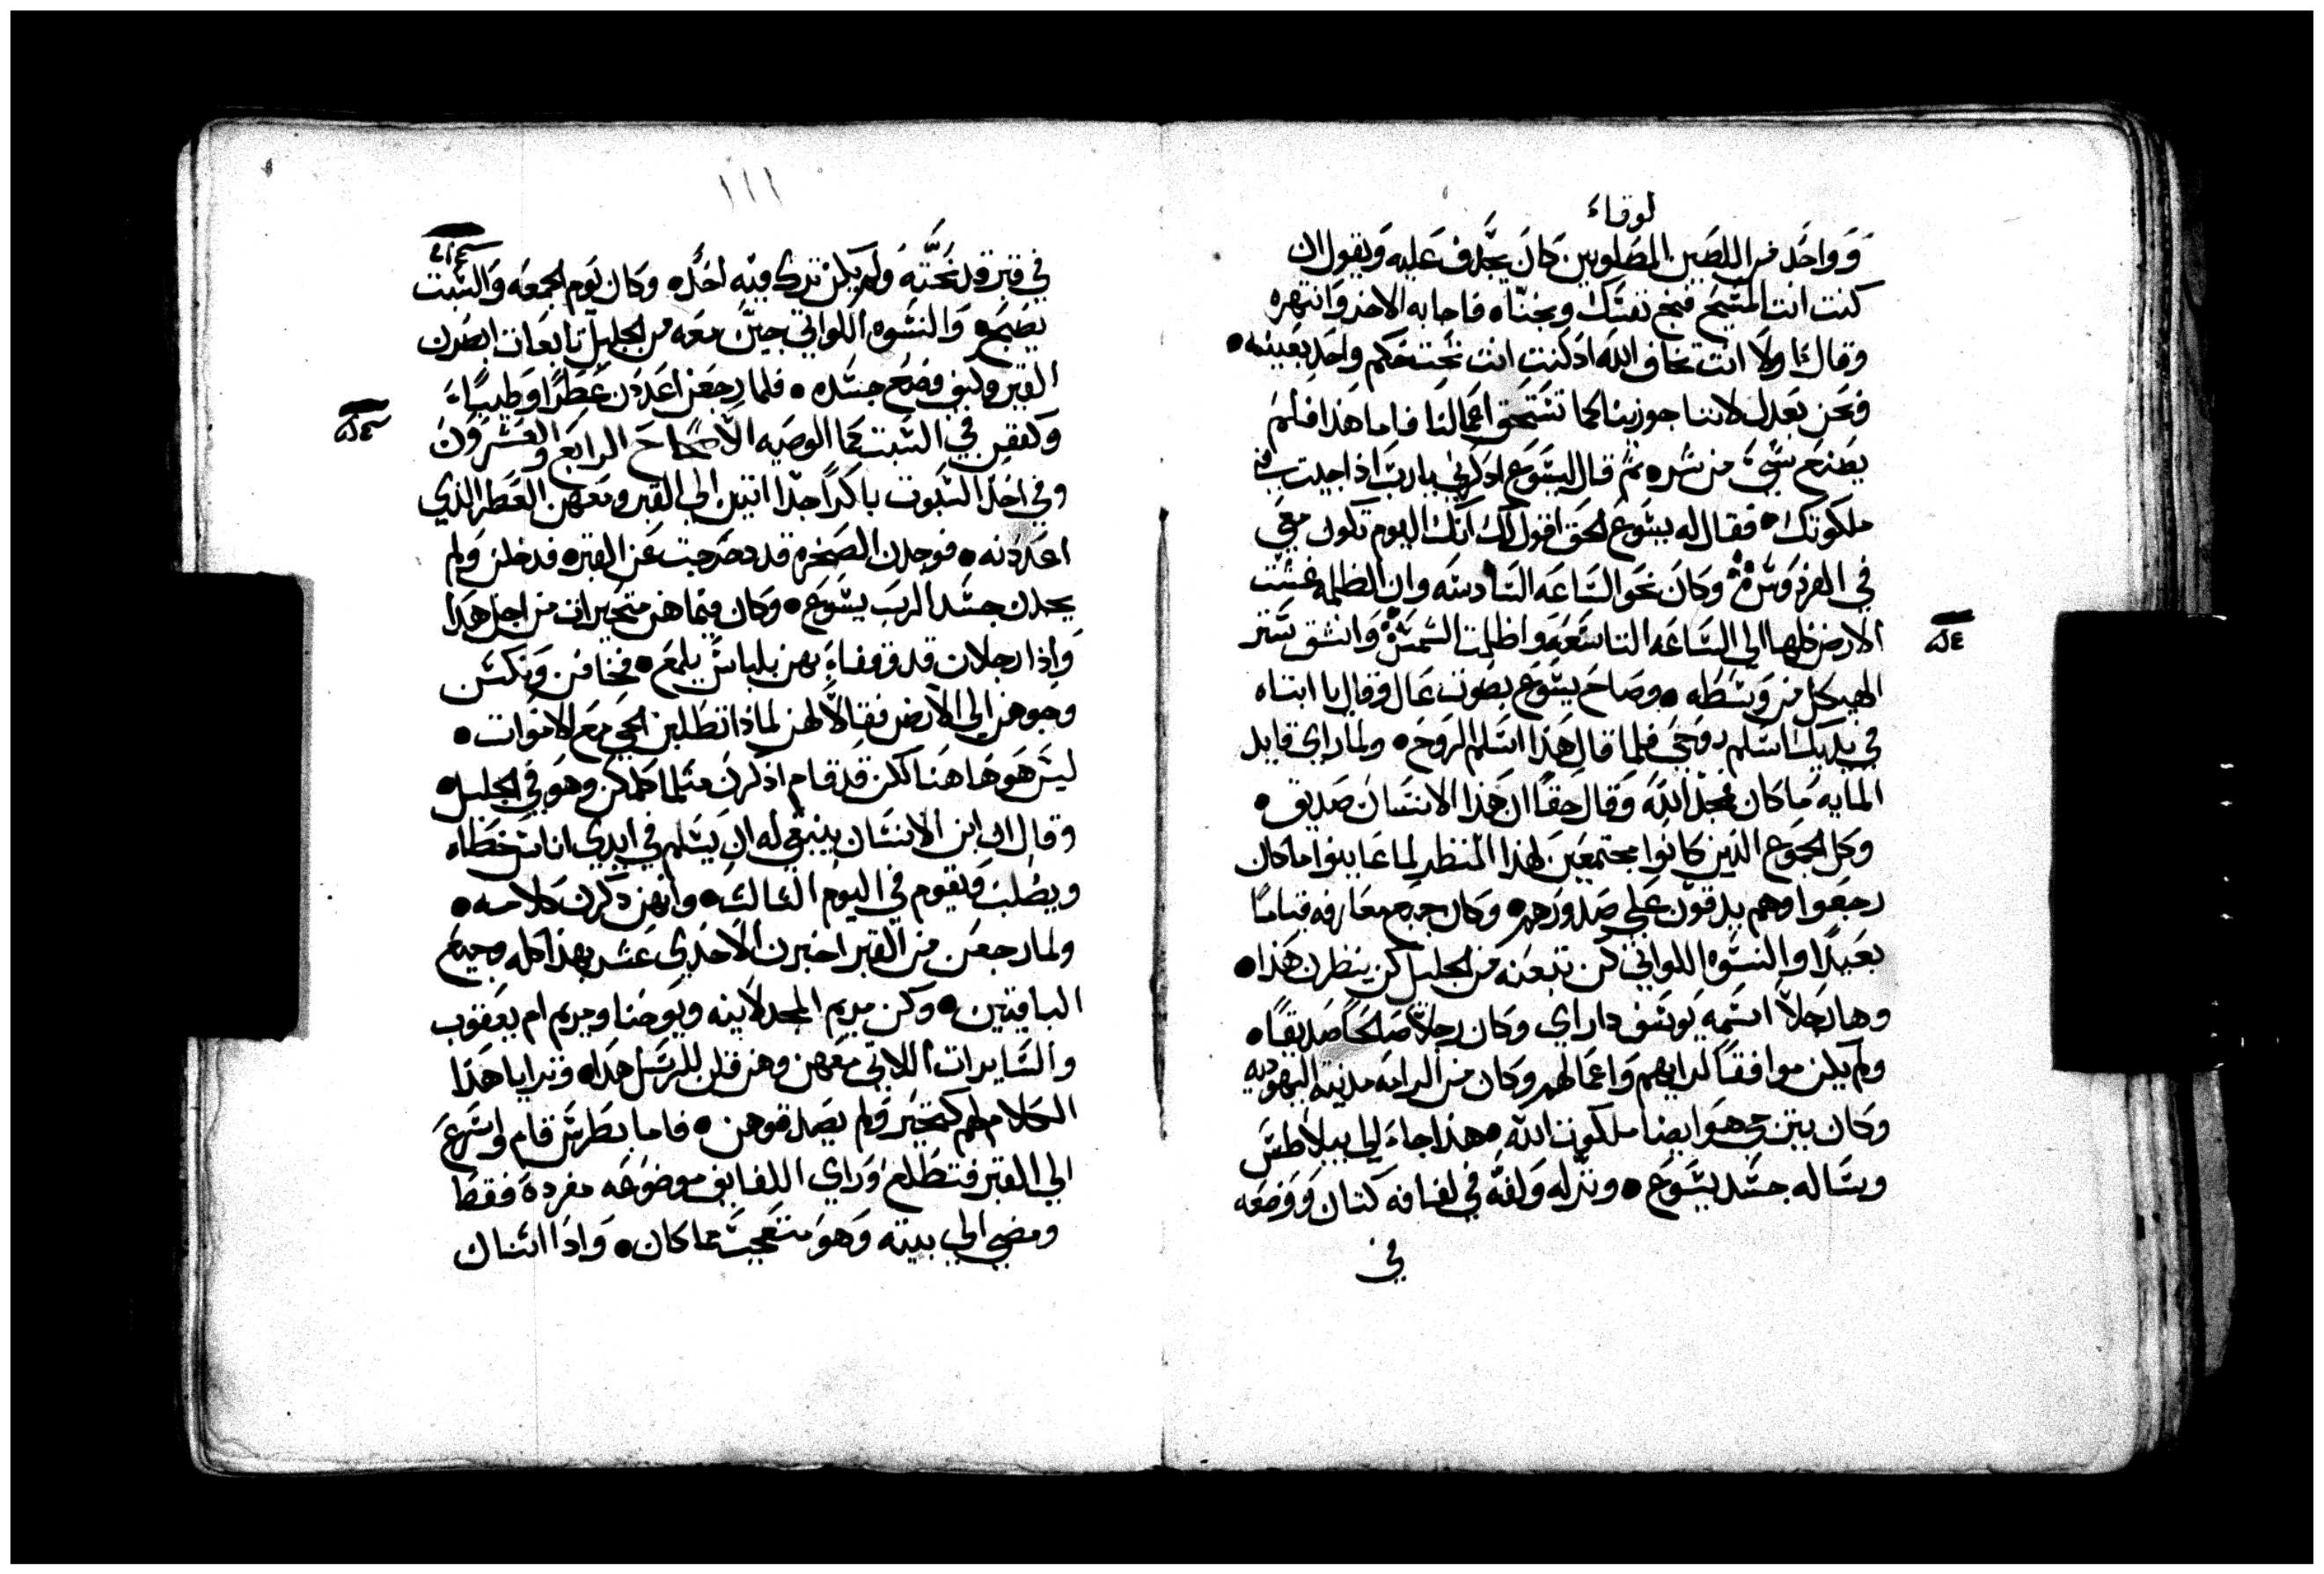 لوقاء
وَوَاحَد من اللصَين المصَلوبين كَانَ يجَدف عَليه وَيقول ان
كنت انت المسَيح فنج نفسَك ونجنّاه فاجابه الاخر وَانتهره
وقال اولا انت تخاف الله اذ كنت انت تحت حكم واحد بعينه •
فنحن بعَدل لاننا جوزينا كما تسَتحق اعَمالنا فاما هَذا فلم
يصَنع شَيء من شره ثم قال ليسَوَع اذكرني يارب اذا جيت في
ملكوتك • فقال له يسَوع الحق اقول لك انك اليوم تكون معَي
في الفرْدوسَ وكَانَ نحَو السَاعَه السَادسَه وان الظلمه غشت
الارض كلها الي السَاعَه التاسَعَه واظلمت الشمسَ وَانشق سَتر
الهيكل من وسَطه • وصَاحَ يسَوَع بصَوت عَال وقال يا ابتاه
في يديك اسَلم روحَي فلما قال هَذا اسَلم الروَح • ولما راي قايد
المايه مَا كان مجد الله وَقال حَقا ان هَذا الانسَان صَديق •
وكل الجموع الذين كانوا مجتمعَين لهذا المنظر لما عَاينوا ما كان
رجعَوا وهم يدقون عَلي صَدورَهم • وكان جميع معَارفه قياما
بعَيدا والنسَوه اللواتي كن تبعَنه من الجليل كن ينظرن هَذا •
وها رجلا اسَمه يوسَف دا راي وكان رجلا صَالحا صَديقا •
ولم يكن موافقا لرايهم وَاعَمالهم وكان من الرامه مدنية اليهوديه
وكان يترجي هَوَ ايضا ملكوت الله • هذا جاء الي بيلاطسَ
وسَاله جسَد يسَوَع • ونزله وَلفه في لفافه كتان ووَضعَه
في
١١١
في قبر قد نحَته وَلم يكن ترك فيه احَد • وكان يوم الجمعَه وَالسَبت
يصَبح • وَالنسَوه اللواتي جين معَه من الجليل تابعَات ابصَرن
القبر وكيف وضع جسَده • فلما رجعَن اعَددن عَطرا وَطيبا •
وكففن في السَبت كما الوصَيه الاصَحاحَ الرابع والعَشرَون
وفي احَد السَبوت باكرا جدا اتين الي القبر ومعَهن العَطر الذي
اعَددنه • فوجدن الصَخره قد دحَرجت عَن القبر • فدخلن ولم
يجدن جسَد الرب يسَوَع • وكان فيما هن متحيرات من اجل هَذا
وَاذا رجلان قد وقفاءَ بهن بلباسَ يلمعَ • فخافن وَنكسَن
وجوهن الي الارض فقالا لهن لماذا تطلبن الحي معَ الاموات •
ليسَ هَو هَا هَنا لكن قد قام اذكرن مثلما كلمكن وهو في الجليل •
وقال ان ابن الانسَان ينبغي له ان يسَلم في ايدي اناسَ خطاه
ويصَلب ويقوم في اليوم الثالث • وانهن ذكرن كلامه •
ولما رجعَن من القبر اخبرن الاحَدي عَشر بهذا كله وجميع
الباقيين • وكن مريم المجدلانيه ويوحنا ومريم ام يعَقوب
والسَايرات اللاتي معَهن وهن قلن للرسَل هَذا • وترايا هَذا
الكلام لهم كمتحَير ولم يصَدقوهن • فاما بطرسَ قام واسَرعَ
الي القبر فتطلع وَراي اللفايف موضوعَه مفرده فقط
ومضي الي بيته وَهو متعَجب مما كان • وَاذا اثنان